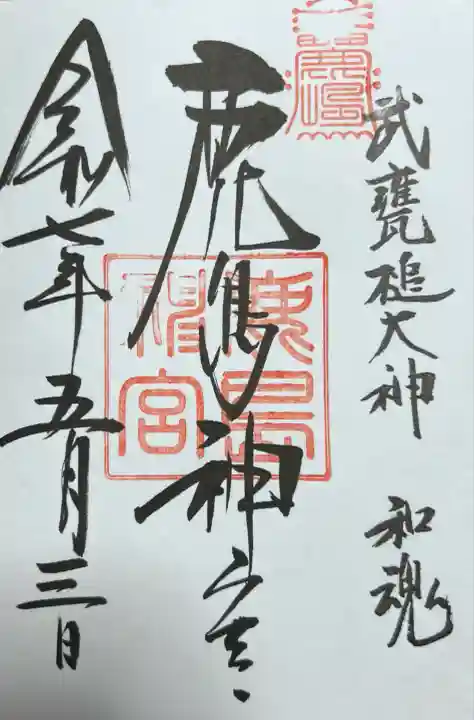 武甕槌大神 和魂
鹿嶋神宮
令和七年五月三日
鹿島
神宮